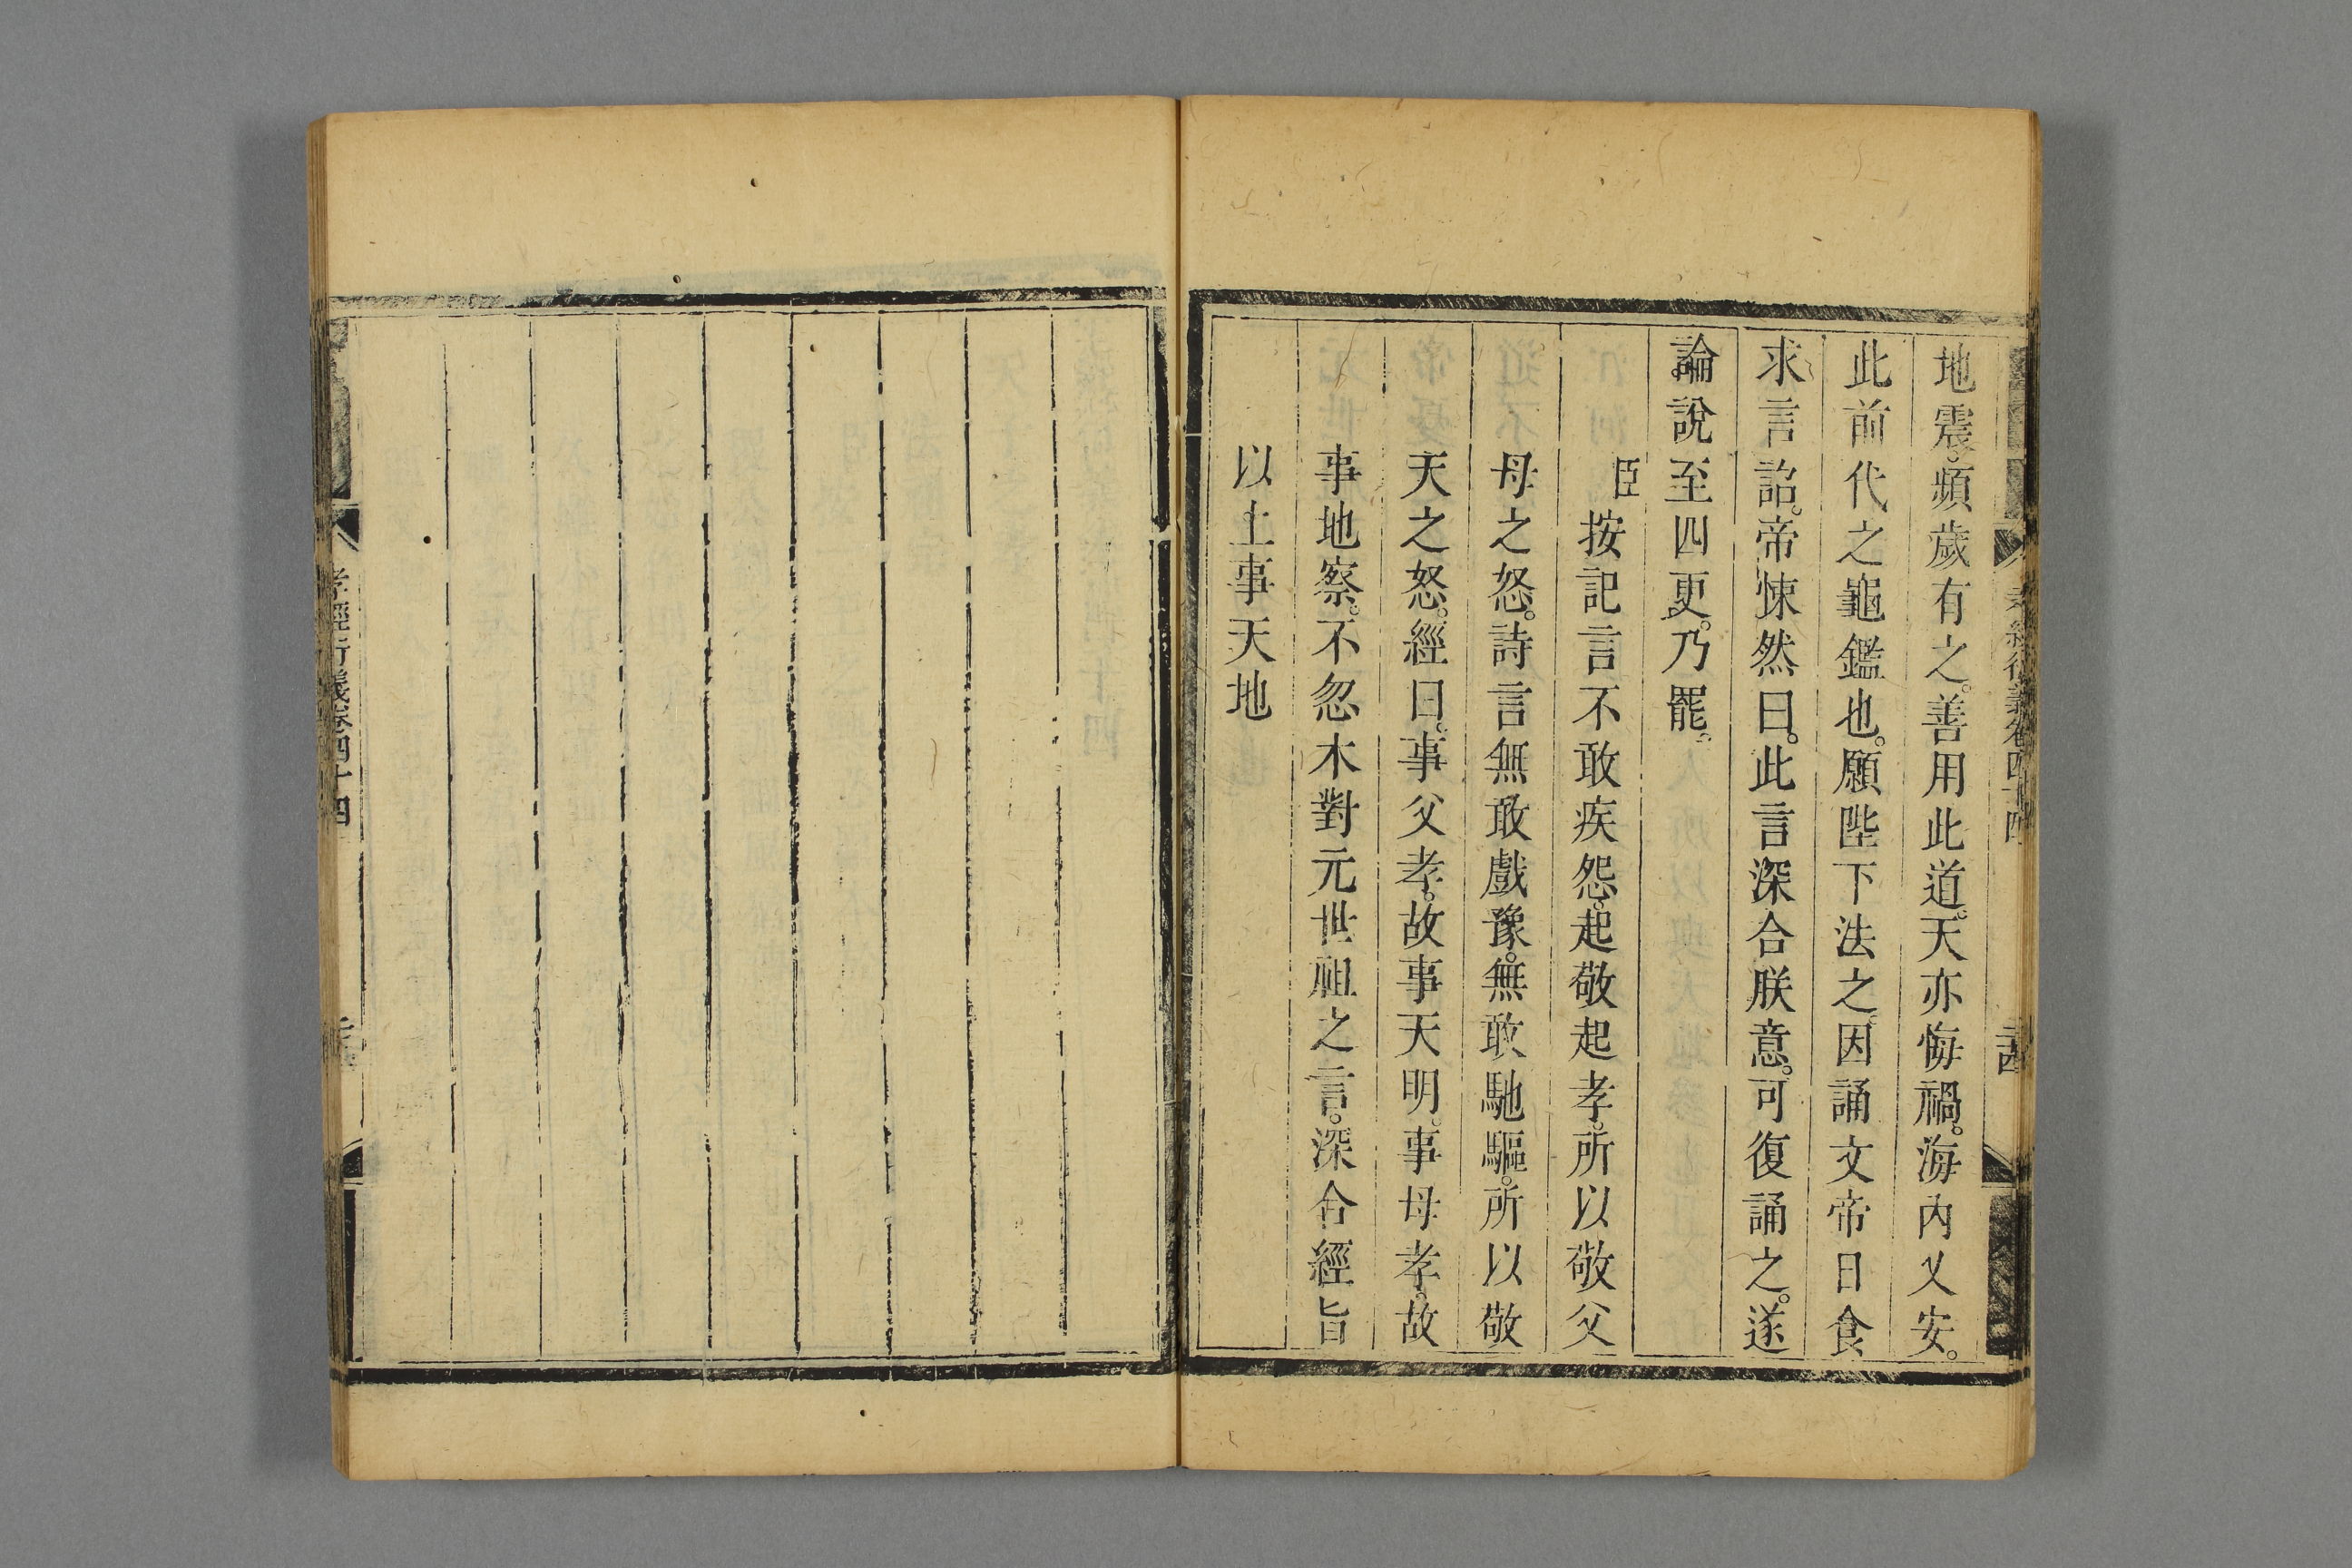 地震。頻歲有之。善用此道。天亦悔禍。海內乂安。
此前代之龜鑑也。願陛下法之。因誦文帝日食
求言詔。帝悚然曰。此言深合朕意。可復誦之。遂
論說至四更。乃罷。
臣按記言不敢疾怨。起敬起孝。所以敬父
母之怒。詩言無敢戲豫。無敢馳驅。所以敬
天之怒。經曰。事父孝。故事天明。事母孝。故
事地察。不忽木對元世祖之言。深合經旨
以上事天地
孝經衍義卷四十四